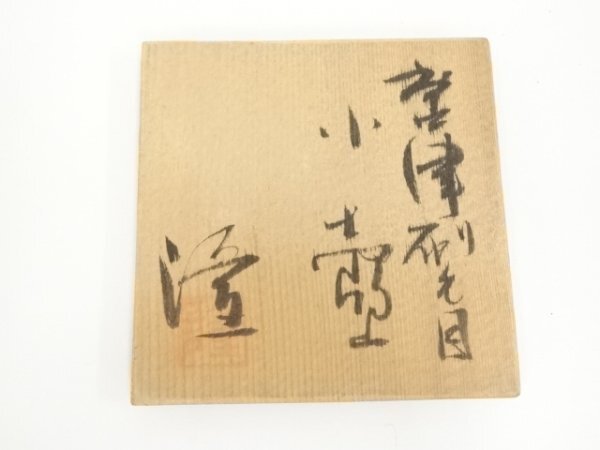 唐津刷毛目
小壺